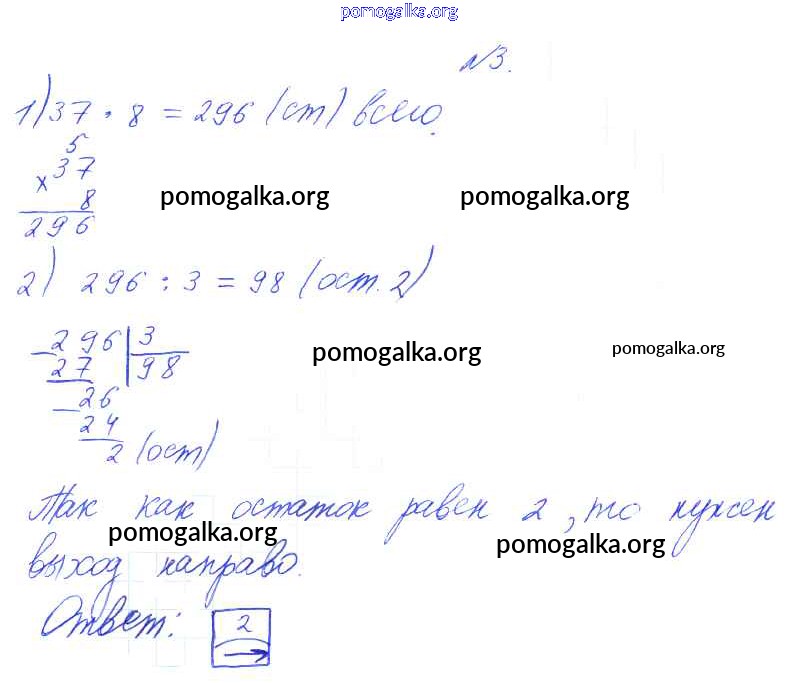 pomogalka.org
№3.
1) 37 · 8 = 296 (ст) всего.
5
× 37
8
296
pomogalka.org pomogalka.org
2) 296 : 3 = 98 (ост. 2)
− 296 | 3
27 | 98
− 26
24
2 (ост)
pomogalka.org pomogalka.org
Так как остаток равен 2, то нужен
pomogalka.org pomogalka.org
выход направо.
Ответ: 2 →